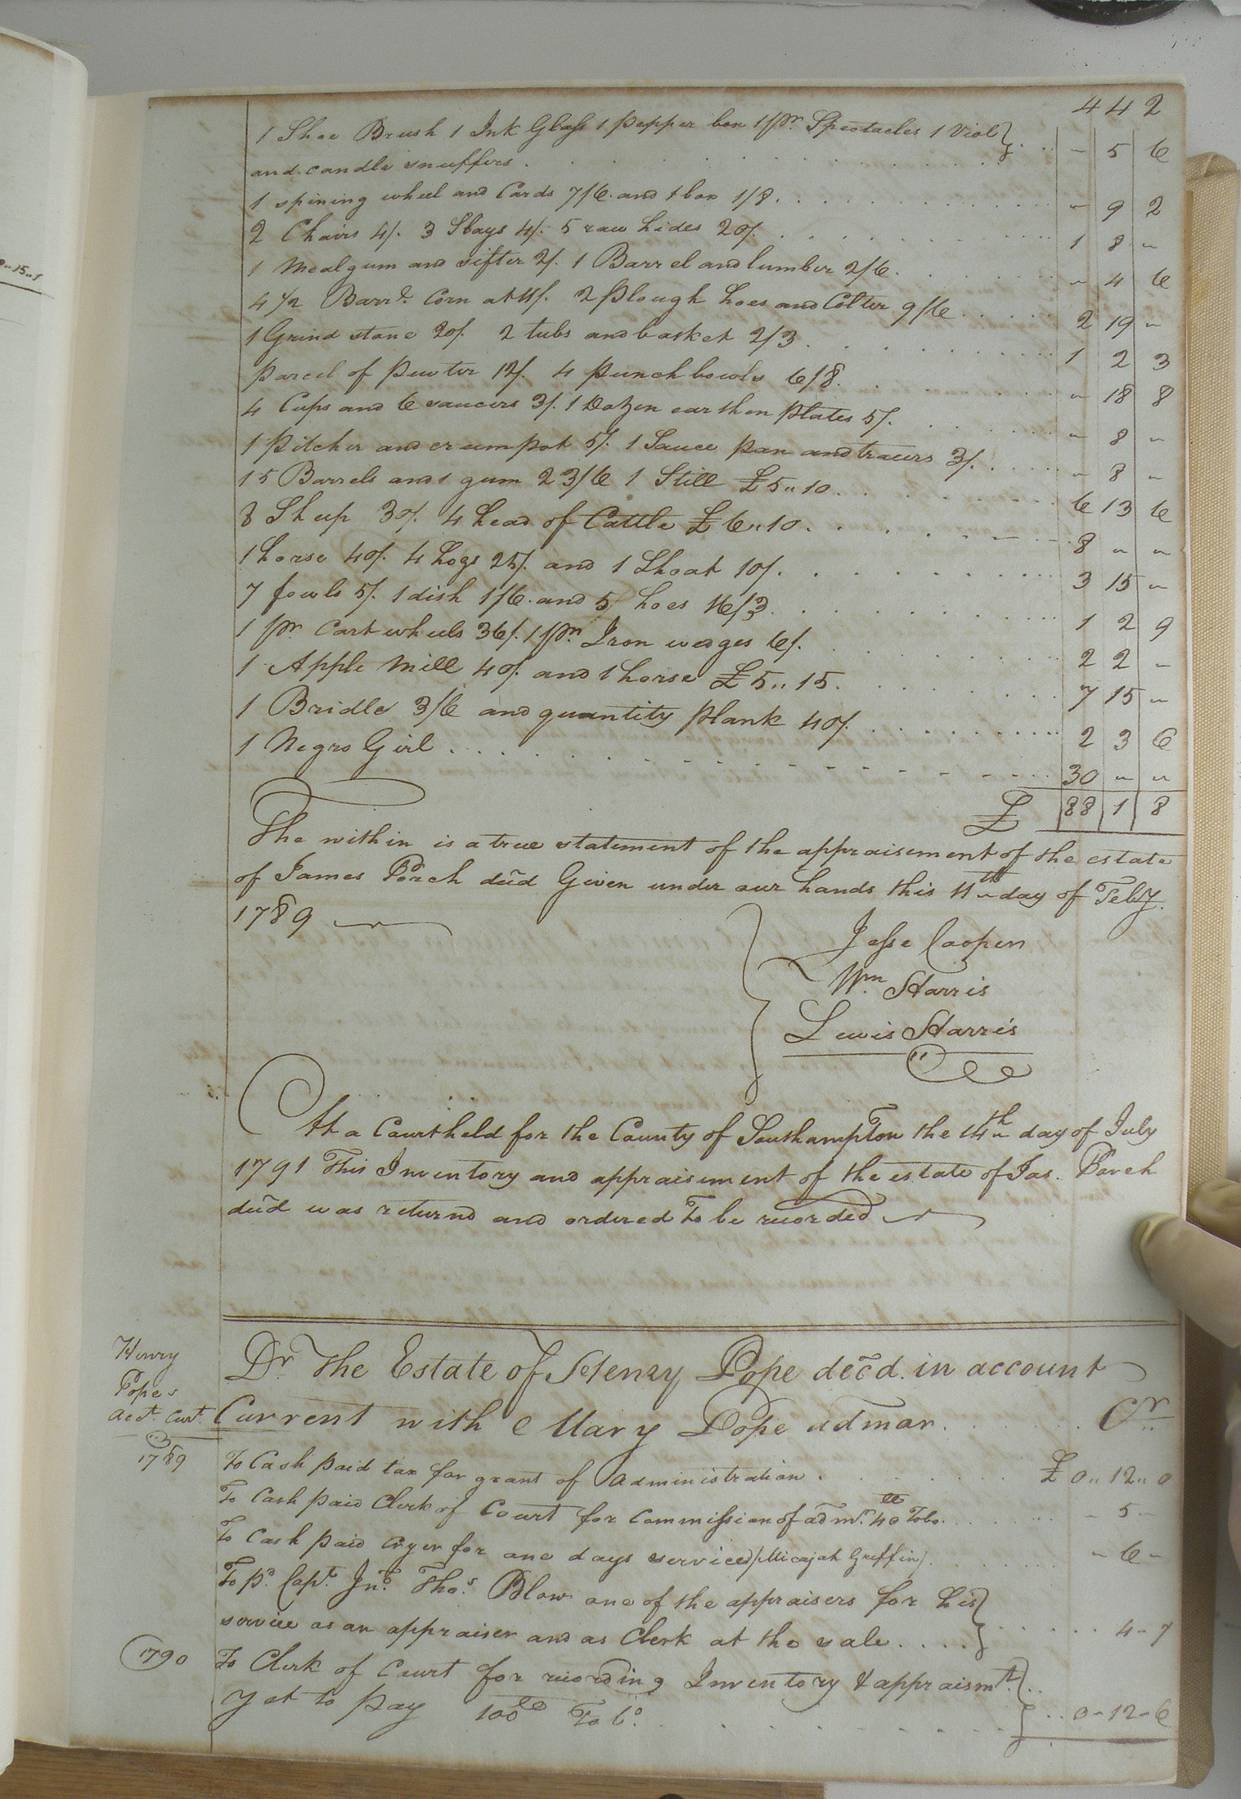 4 4 2
1 Shoe Brush 1 Ink Glass 1 pepper box 1 pr. Spectacles 1 Viol
and candle snuffers . . . " 5 6
1 spining wheel and Cards 7/6. and 1 box 1/8 . . . " 9 2
2 Chairs 4/. 3 Slays 4/. 5 raw hides 20/. . . . 1 8 "
1 Mealgum and sifter 2/. 1 Barrel and lumber 2/6 . . . " 4 6
4 1/2 Barrs. Corn at 11/. 2 plough hoes and Colter 9/6 . . . 2 19 "
1 Grind stone 20/. 2 tubs and basket 2/3 . . . 1 2 3
parcel of pewter 12/. 4 punch bowls 6/8 . . . " 18 8
4 Cups and 6 saucers 3/. 1 Dozen earthen plates 5/. . . . " 8 "
1 pitcher and creampot 5/. 1 Sauce pan and 3/. . . . " 8 "
15 Barrels and 1 gum 23/6 1 Still £5"10 . . . 6 13 6
8 Sheep 30/. 4 head of Cattle £6"10 . . . 8 " "
1 horse 40/. 4 hogs 25/. and 1 Shoat 10/. . . . 3 15 "
7 fowls 5/. 1 dish 1/6. and 5 hoes 16/3 . . . 1 2 9
1 pr Cart wheels 36/. 1 pr. Iron wedges 6/. . . . 2 2 "
1 Apple Mill 40/. and 1 horse £5"15. . . . 7 15 "
1 Bridle 3/6 and quantity plank 40/. . . . 2 3 6
1 Negro Girl . . . 30 " "
£ 88 1 8
The within is a true statement of the appraisement of the estate
of James Porch decd Given under our hands this 11th day of Feby.
1789
Jesse Cooper
Wm. Harris
Lewis Harris
At a Court held for the County of Southampton the 14th day of July
1791 This Inventory and appraisement of the estate of Jas. Porch
decd was returnd and ordered To be recorded
Henry
Popes
acct. Curt.
Dr. The Estate of Henry Pope decd. in account
Current with Mary Pope admar. . . . Cr.
1789
To Cash paid tax for grant of administration . . . £ 0"12"0
To Cash paid Clerk of Court for Commission of admr. 40 lb Tobo. . . . - 5 -
To Cash paid cryer for one days service (Micajah Griffin) . . . - 6 -
To pd. Capt. Jno. Thos. Blow one of the appraisers for his
service as an appraiser and as Clerk at the sale . . . 4-7
1790
To Clerk of Court for recording Inventory & appraismt.
Yet to pay 100 lb Tobo. . . . 0-12-6